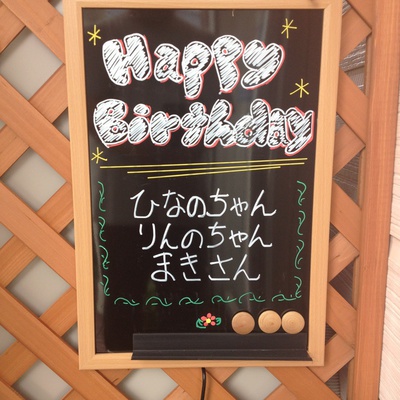 Happy
Birthday
ひなのちゃん
りんのちゃん
まきさん